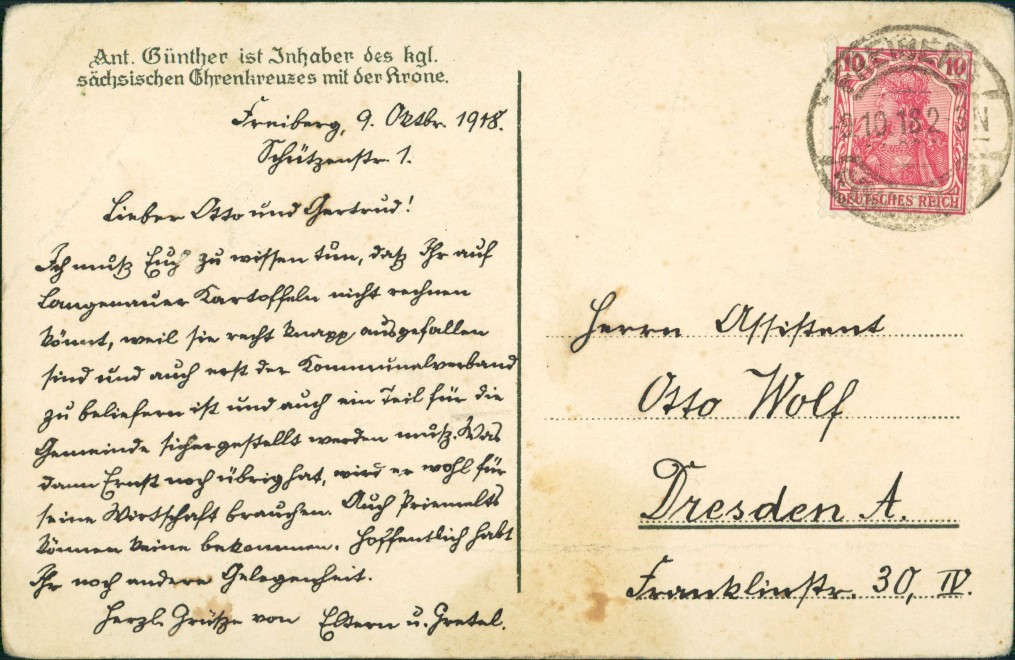 Ant. Günther ist Inhaber des kgl.
sächsischen Ehrenkreuzes mit der Krone.
Freiberg, 9. Oktbr. 1918.
Schützenstr. 1.
Lieber Otto und Gertrud!
Ich muß Euch zu wissen tun, daß Ihr auf
Langenauer Kartoffeln nicht rechnen
könnt, weil sie recht knapp ausgefallen
sind und auch erst der Kommunalverband
zu beliefern ist und auch ein Teil für die
Gemeinde sichergestellt werden muß. Was
dann Ernst noch übrig hat, wird er wohl für
seine Wirtschaft brauchen. Auch Priemelts
können keine bekommen. Hoffentlich habt
Ihr noch andere Gelegenheit.
Herzl. Grüße von Eltern u. Gretel.
10 10
DEUTSCHES REICH
-9.10.18.2
Herrn Assistent
Otto Wolf
Dresden A.
Franklinstr. 30, IV.